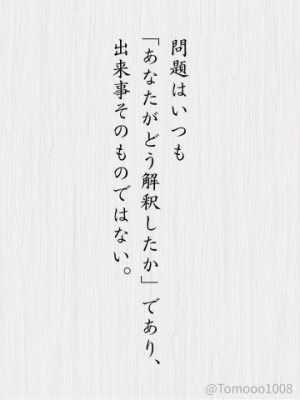 問題はいつも
「あなたがどう解釈したか」であり、
出来事そのものではない。
@Tomooo1008